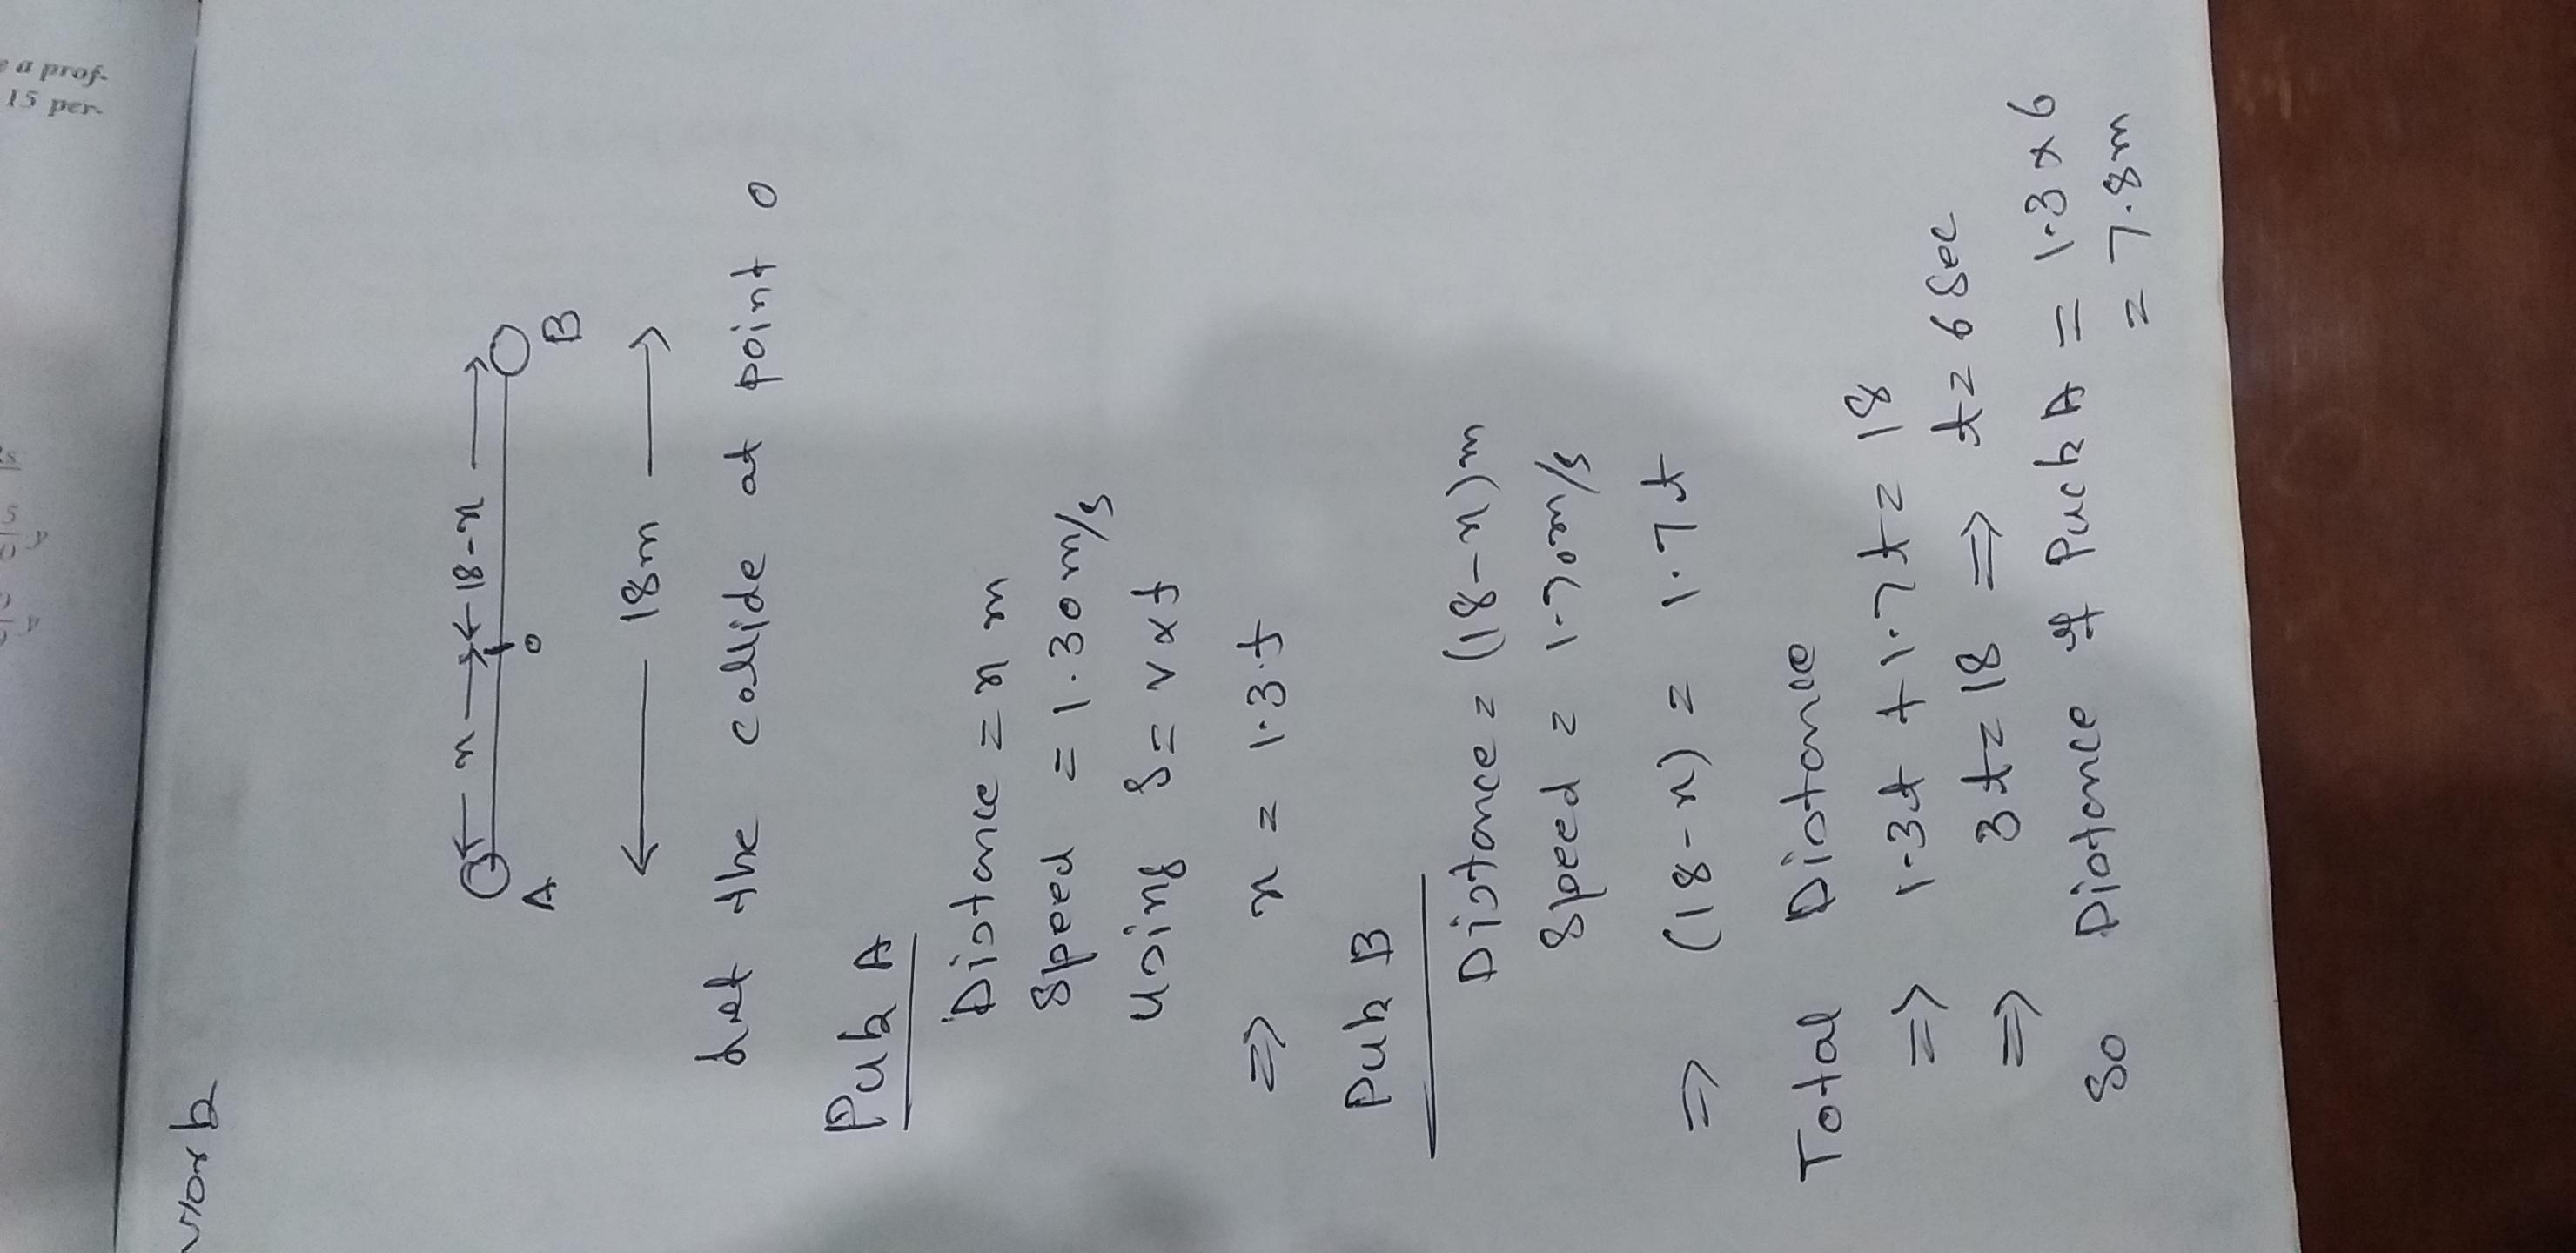 e a prof-
15 per-
5
y
y
work
x
18-x
A
o
B
18m
Let the collide at point o
Puk A
Distance = x m
Speed = 1.30 m/s
Using S = v x t
=> x = 1.3t
Puk B
Distance = (18-x)m
Speed = 1.70m/s
=> (18-x) = 1.7t
Total Distance
=> 1.3t + 1.7t = 18
=> 3t = 18 => t = 6 Sec
So Distance of Puck A = 1.3 x 6
= 7.8m